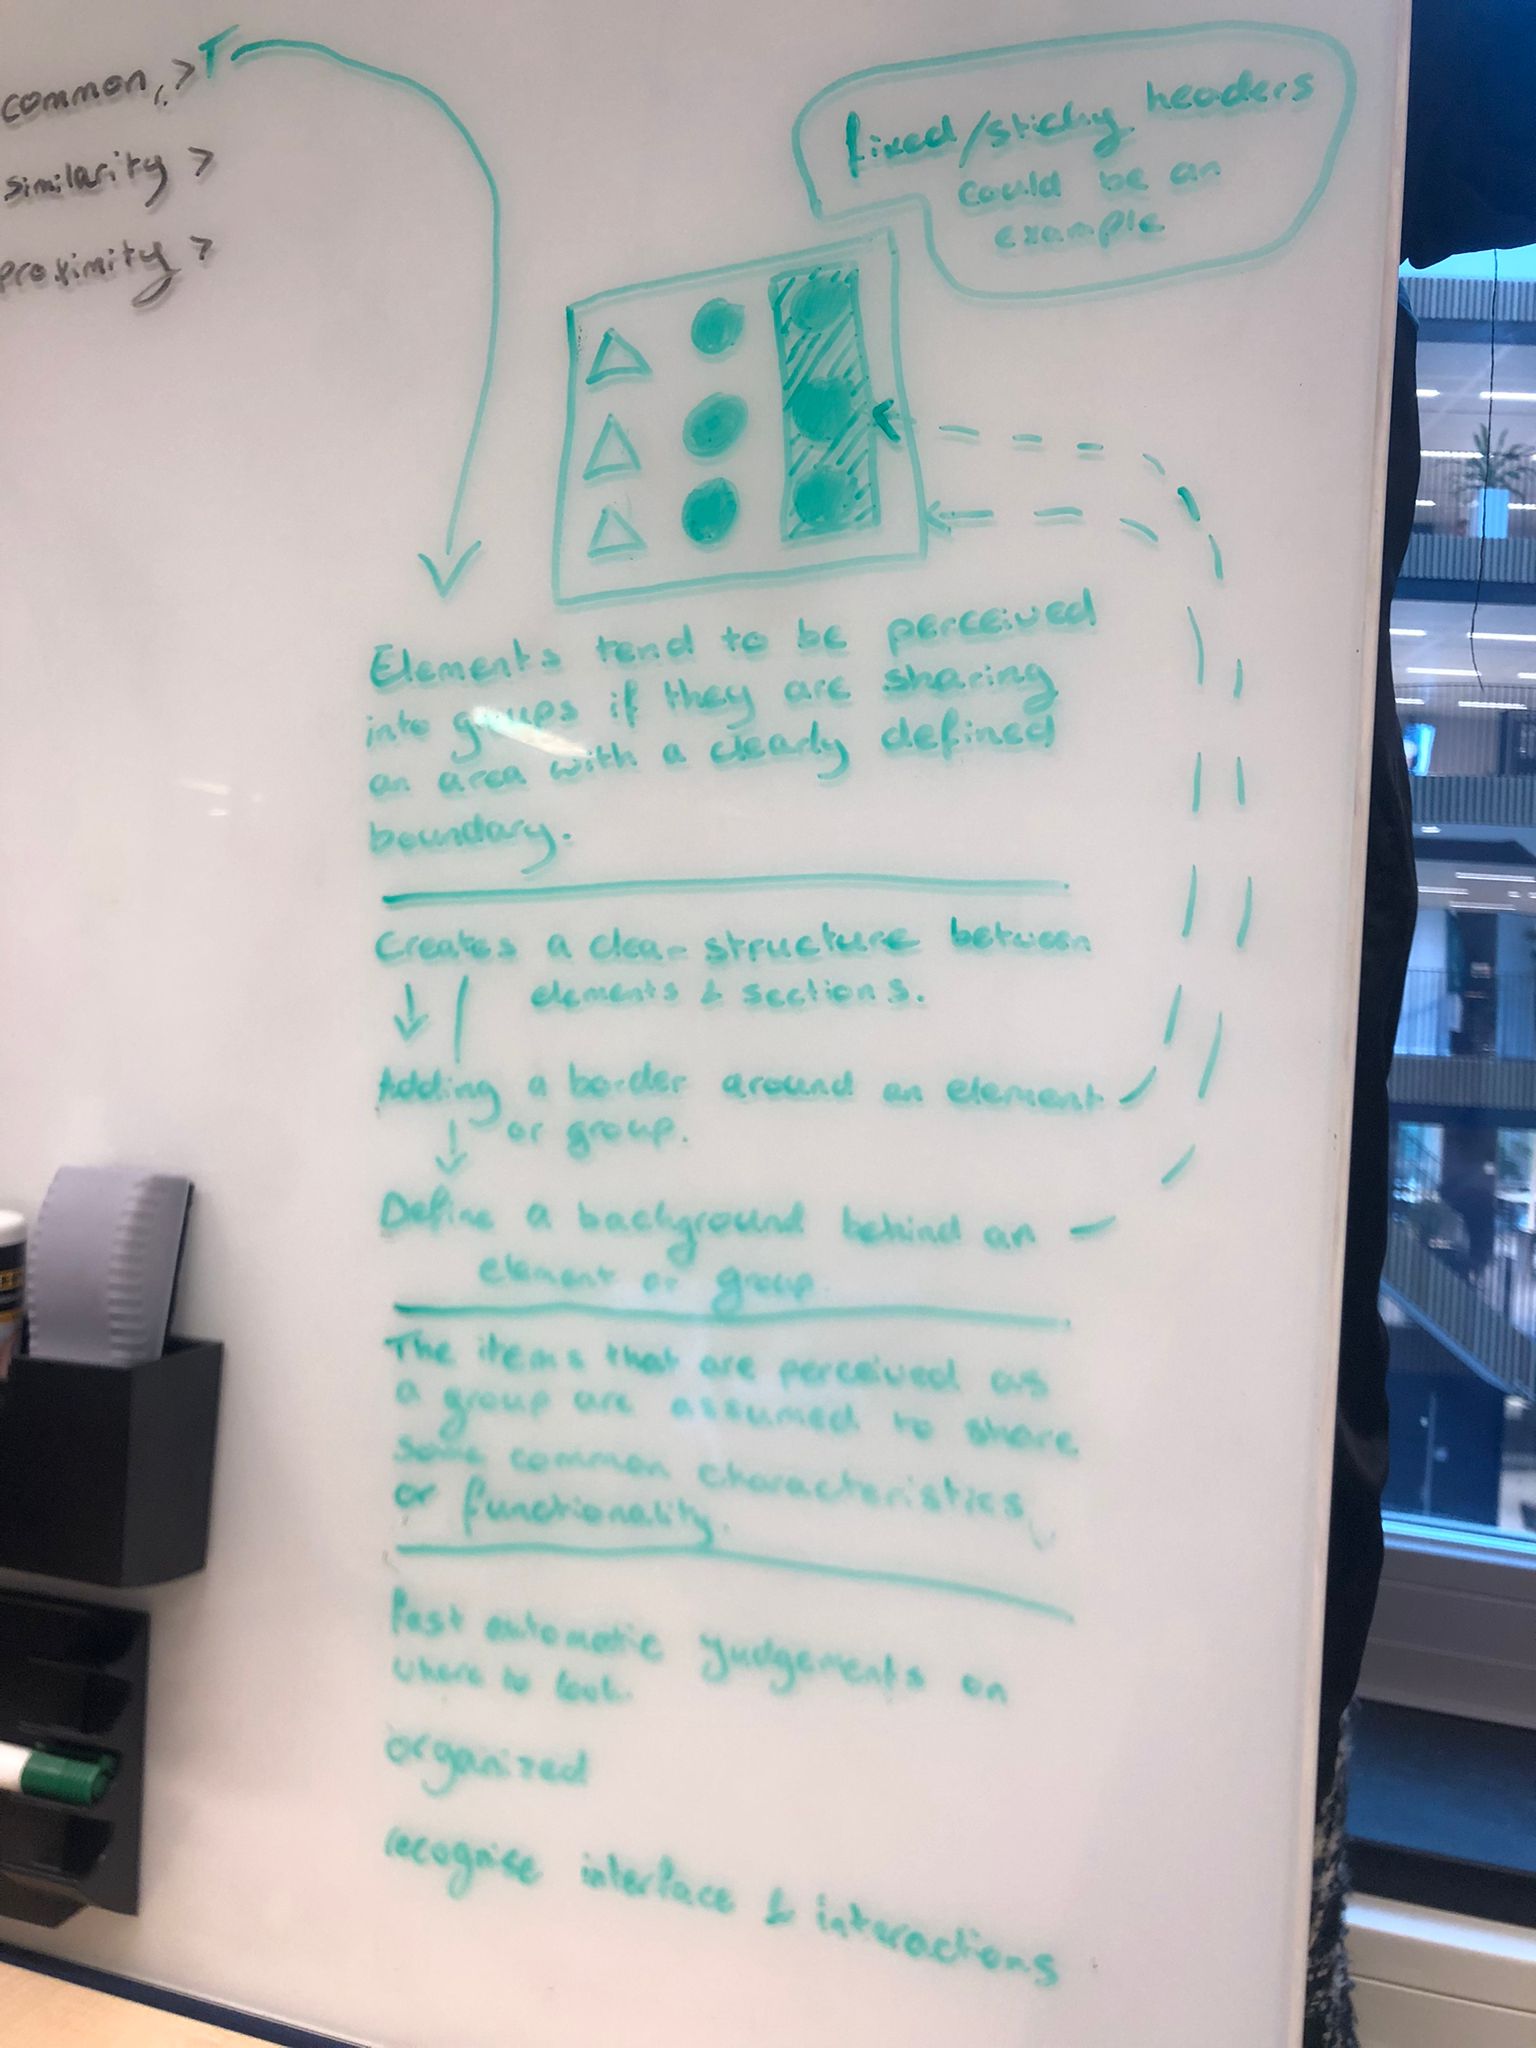 common, >
similarity >
proximity >
fixed/sticky headers
could be an
example
Elements tend to be perceived
into groups if they are sharing
an area with a clearly defined
boundary.
Creates a clear structure between
elements & sections.
Adding a border around an element
or group.
Define a background behind an
element or group
The items that are perceived as
a group are assumed to share
some common characteristics
or functionality.
Fast automatic judgements on
where to look.
organized
recognise interface & interactions